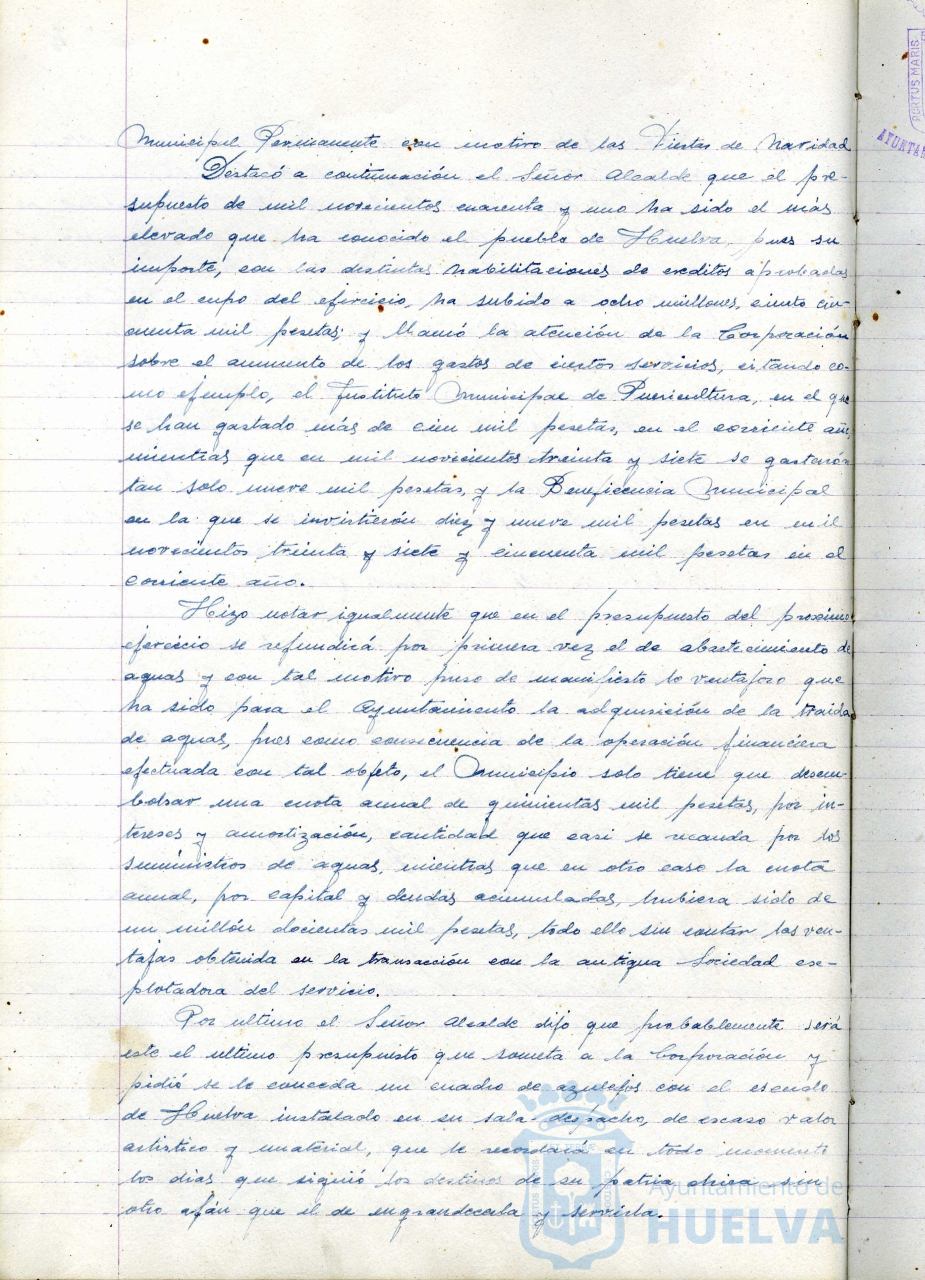 Municipal Permanente con motivo de las Fiestas de Navidad
Destacó a continuación el Señor Alcalde que el pre-
supuesto de mil novecientos cuarenta y uno ha sido el más
elevado que ha conocido el pueblo de Huelva, pues su
importe, con las destintas habilitaciones de creditos aprobadas
en el cupo del ejercicio, ha subido a ocho millones, ciento cin-
cuenta mil pesetas; y llamó la atención de la Corporación
sobre el aumento de los gastos de ciertos servicios, citando co-
mo ejemplo, el Instituto Municipal de Puericultura, en el que
se han gastado más de cien mil pesetas, en el corriente año,
mientras que en mil novecientos treinta y siete se gastaron
tan solo nueve mil pesetas, y la Beneficencia Municipal
en la que se invirtierón diez y nueve mil pesetas en mil
novecientos treinta y siete y cincuenta mil pesetas en el
corriente año.
Hizo notar igualmente que en el presupuesto del proximo
ejercicio se refundirá por primera vez el de abastecimiento de
aguas y con tal motivo puso de manifiesto lo ventajoso que
ha sido para el Ayuntamiento la adquisición de la traida
de aguas, pues como consecuencia de la operación financiera
efectuada con tal objeto, el Municipio solo tiene que desem-
bolsar una cuota anual de quinientas mil pesetas, por in-
tereses y amortización, cantidad que casi se recauda por los
suministros de aguas, mientras que en otro caso la cuota
anual, por capital y deudas acumuladas, hubiera sido de
un millón docientas mil pesetas, todo ello sin contar las ven-
tajas obtenida en la transacción con la antigua Sociedad ex-
plotadora del servicio.
Por ultimo el Señor Alcalde dijo que probablemente será
este el ultimo presupuesto que someta a la Corporación y
pidió se le conceda un cuadro de azulejos con el escudo
de Huelva instalado en su sala despacho, de escaso valor
artistico y material, que le recordará en todo momento
los dias que siguió los destinos de su patria chica sin
otro afán que el de engrandecerla y servirla.
Ayuntamiento de
HUELVA
PORTUS MARIS